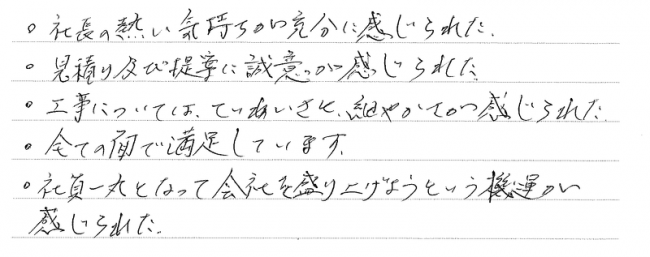 。社長の熱い気持ちが充分に感じられた.
。見積り及び提案に誠意が感じられた
。工事については、ていねいさと、細やかさが感じられた.
。全ての面で満足しています.
。社員一丸となって会社を盛り上げようという機運が
感じられた.